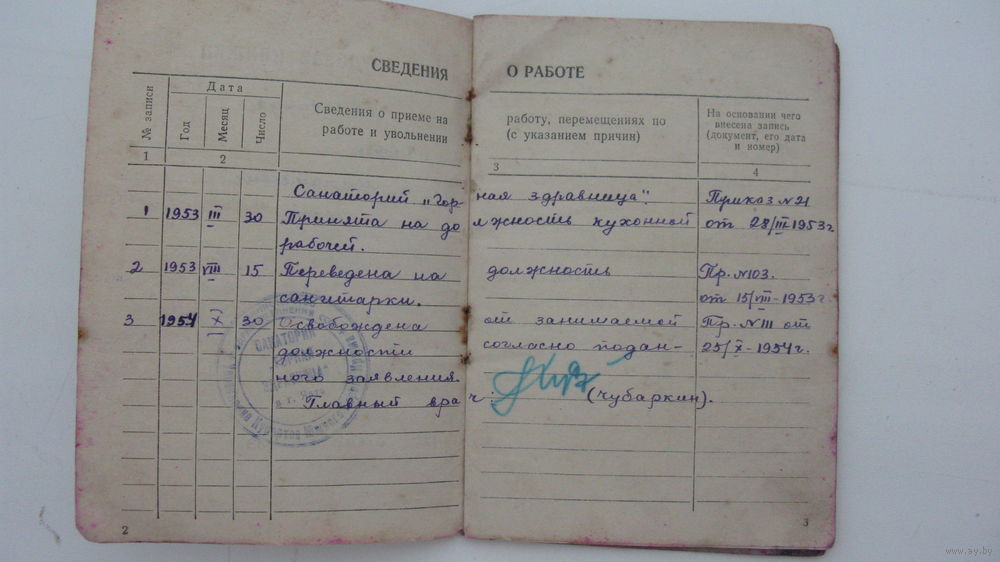 СВЕДЕНИЯ О РАБОТЕ
№ записи
Дата
Год
Месяц
Число
Сведения о приеме на работу, перемещениях по
работе и увольнении (с указанием причин)
На основании чего
внесена запись
(документ, его дата
и номер)
1 2 3 4
Санаторий „Горная здравница".
Приказ №21
1 1953 III 30 Принята на должность кухонной
от 28/III-1953г
рабочей.
2 1953 VIII 15 Переведена на должность
Пр. №103.
санитарки.
от 15/VIII-1953г.
3 1954 X 30 Освобождена от занимаемой
Пр. №111 от
должности согласно подан-
25/X-1954г.
ного заявления.
Главный врач (Чубаркин).
САНАТОРИЙ
2
3
www.ay.by